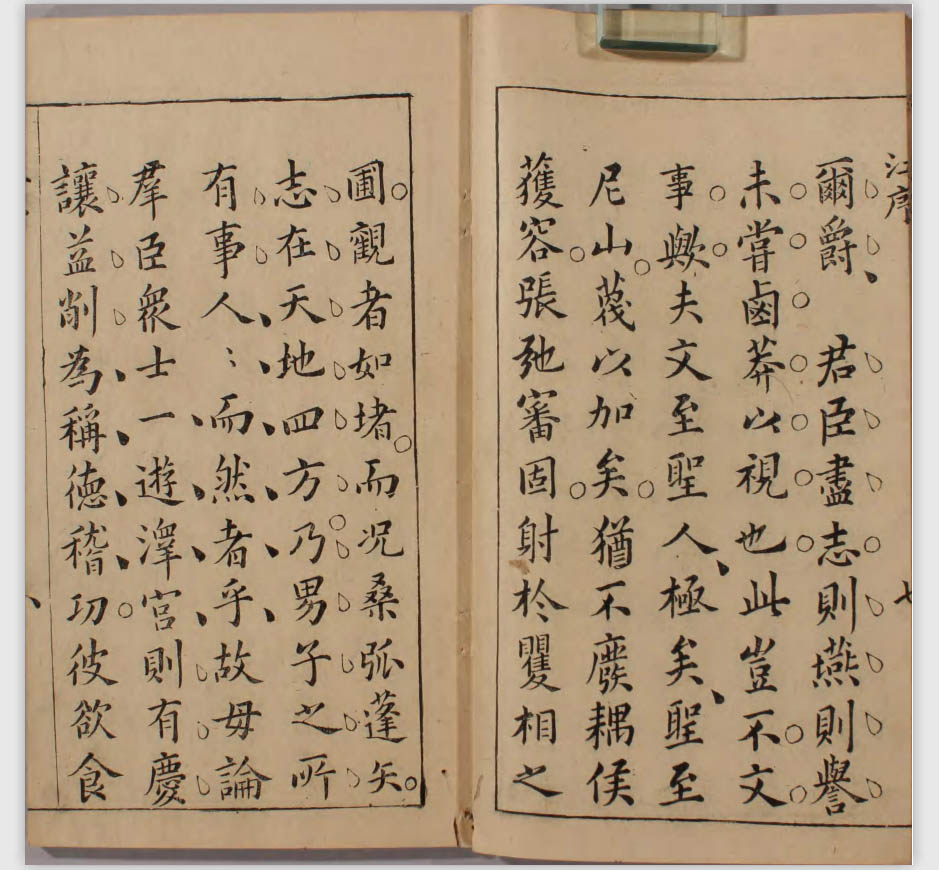 江序
爾爵　君臣盡志則燕則譽
未嘗鹵莽以視也此豈不文
事歟夫文至聖人極矣聖至
尼山蔑以加矣猶不廢耦侯
獲容張弛審固射於矍相之
七
圃觀者如堵而况桑弧蓬矢
志在天地四方乃男子之所
有事人〻而然者乎故毋論
羣臣衆士一遊澤宮則有慶
讓益削為稱德稽功彼欲食